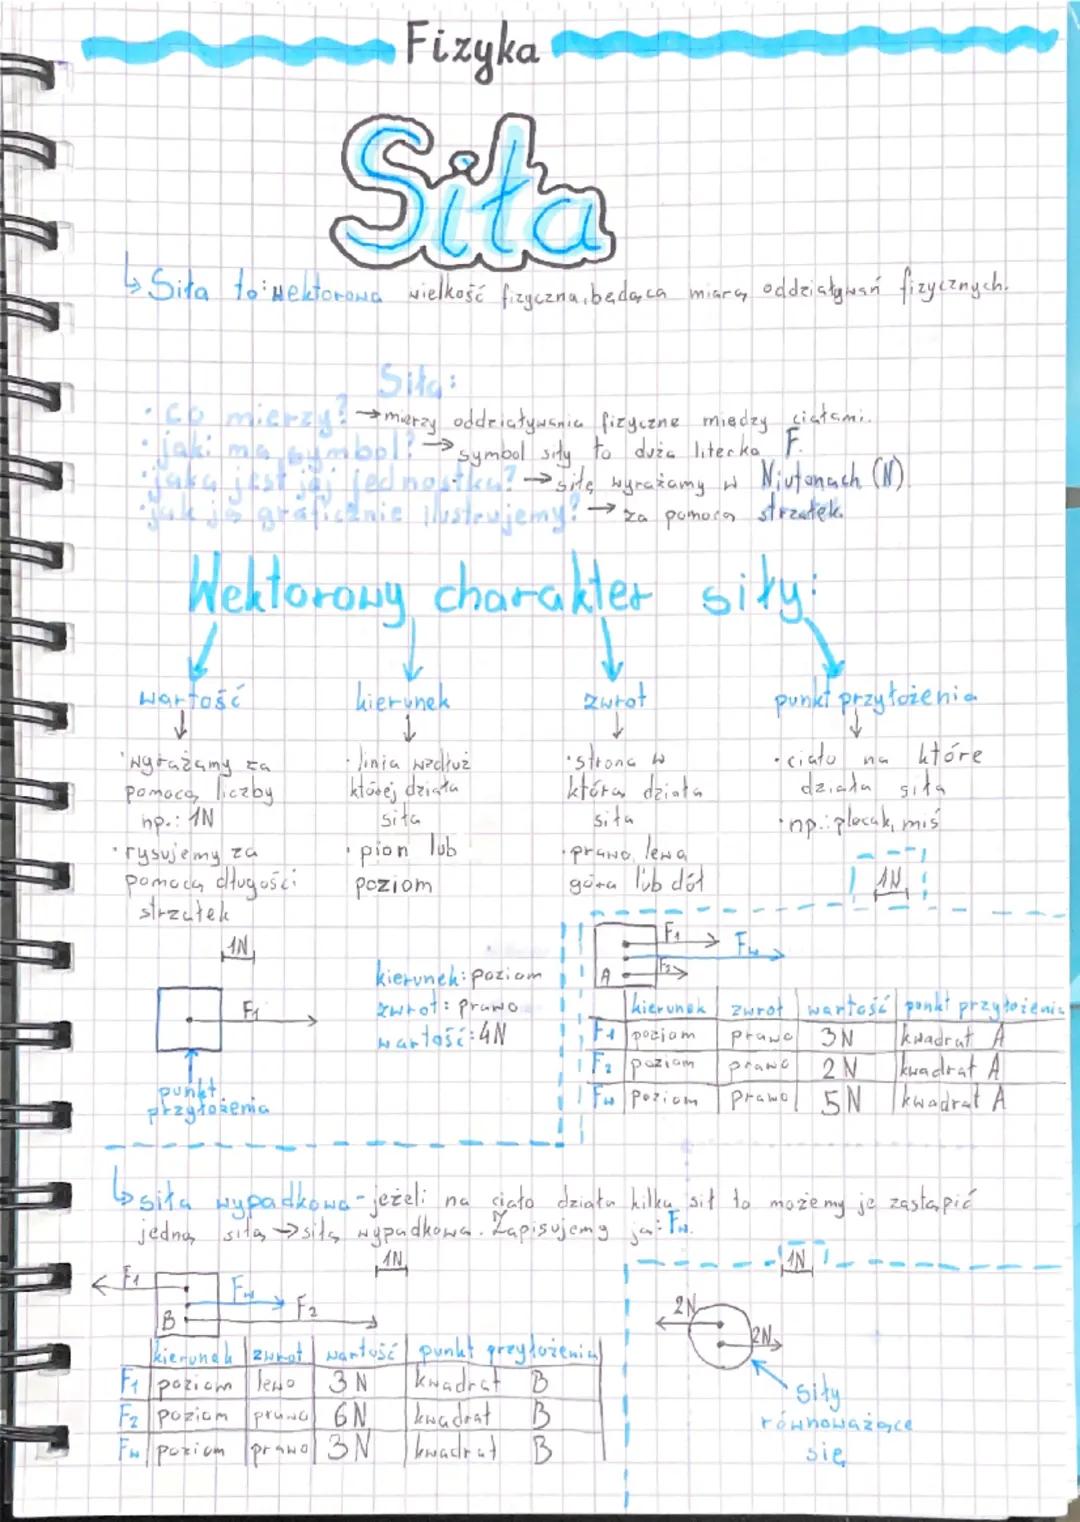 Fizyka
Siła
↳ Siła to: wektorowa wielkość fizyczna, będąca miarą oddziaływań fizycznych.
Siła:
· co mierzy? → mierzy oddziaływania fizyczne między ciałami.
· jaki ma symbol? → symbol siły to duża literka F.
· jaka jest jej jednostka? → siłę wyrażamy w Niutonach (N).
· jak ją graficznie ilustrujemy? → za pomocą strzałek.
Wektorowy charakter siły:
wartość kierunek zwrot punkt przyłożenia
· wyrażamy za pomocą liczby np.: 1N
· rysujemy za pomocą długości strzałek
· linia wzdłuż której działa siła
· pion lub poziom
· strona w którą działa siła
· prawo, lewo góra lub dół
· ciało na które działa siła
· np.: plecak, miś
1N
F1
punkt przyłożenia
kierunek: poziom
zwrot: prawo
wartość: 4N
1N
F1
Fw
F2
A
kierunek zwrot wartość punkt przyłożenia
F1 poziom prawo 3N kwadrat A
F2 poziom prawo 2N kwadrat A
Fw poziom prawo 5N kwadrat A
↳ siła wypadkowa - jeżeli na ciało działa kilka sił to możemy je zastąpić
jedną siłą → siłą wypadkową. Zapisujemy ją: Fw.
1N
F1
Fw
F2
B
kierunek zwrot wartość punkt przyłożenia
F1 poziom lewo 3N kwadrat B
F2 poziom prawo 6N kwadrat B
Fw poziom prawo 3N kwadrat B
1N
2N
2N
siły
równoważące
się